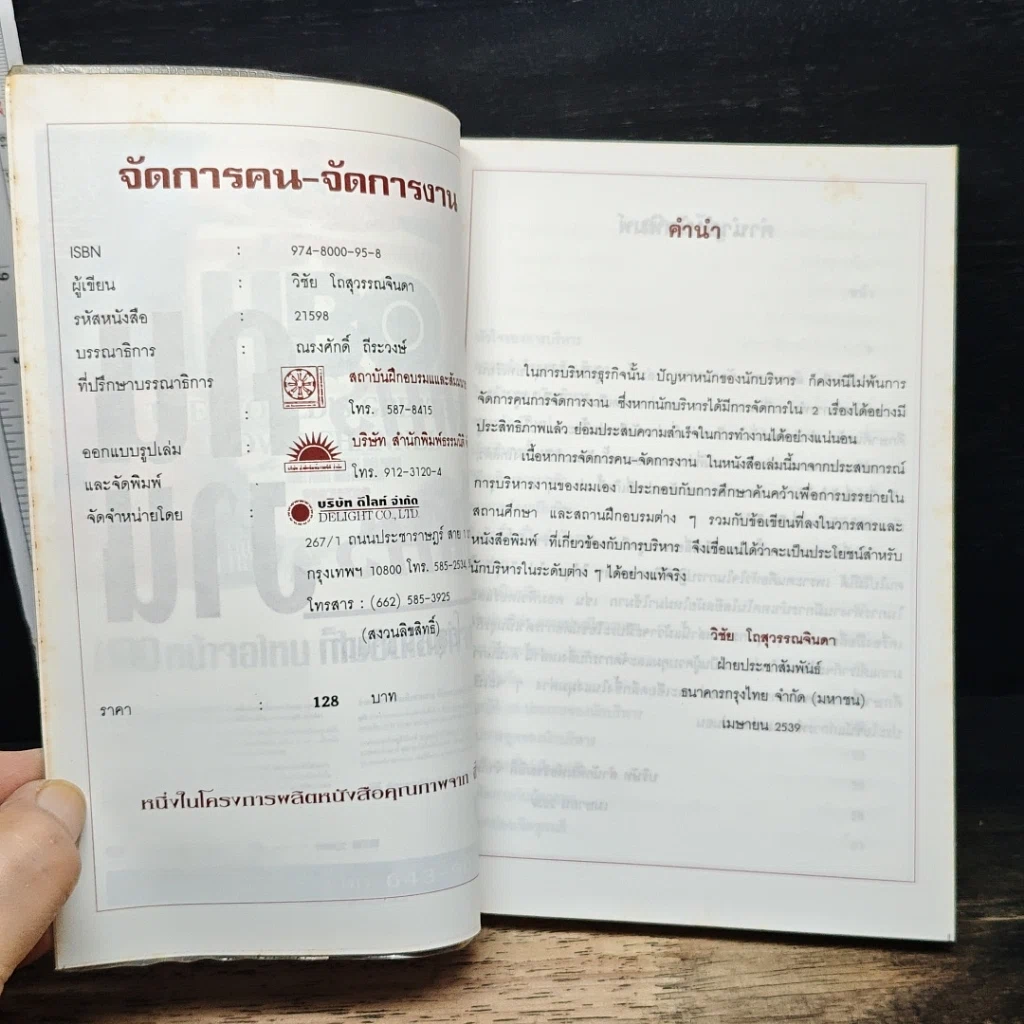 จัดการคน-จัดการงาน
ISBN : 974-8000-95-8
ผู้เขียน : วิชัย โถสุวรรณจินดา
รหัสหนังสือ : 21598
บรรณาธิการ : ณรงศักดิ์ ถีระวงษ์
ที่ปรึกษาบรรณาธิการ : สถาบันฝึกอบรมและ
โทร. 587-8415
ออกแบบรูปเล่ม : บริษัท สำนักพิมพ์ธรรมนิติ
และจัดพิมพ์ : โทร. 912-3120-4
จัดจำหน่ายโดย : บริษัท ดีไลท์ จำกัด
DELIGHT CO., LTD.
267/1 ถนนประชาราษฎร์ สาย
กรุงเทพฯ 10800 โทร. 585-2534
โทรสาร : (662) 585-3925
(สงวนลิขสิทธิ์)
ราคา : 128 บาท
หนึ่งในโครงการผลิตหนังสือคุณภาพจาก
คำนำ
ในการบริหารธุรกิจนั้น ปัญหาหนักของนักบริหาร ก็คงหนีไม่พ้นการ
จัดการคนการจัดการงาน ซึ่งหากนักบริหารได้มีการจัดการใน 2 เรื่องได้อย่างมี
ประสิทธิภาพแล้ว ย่อมประสบความสำเร็จในการทำงานได้อย่างแน่นอน
เนื้อหาการจัดการคน-จัดการงาน ในหนังสือเล่มนี้มาจากประสบการณ์
การบริหารงานของผมเอง ประกอบกับการศึกษาค้นคว้าเพื่อการบรรยายใน
สถานศึกษา และสถานฝึกอบรมต่าง ๆ รวมกับข้อเขียนที่ลงในวารสารและ
หนังสือพิมพ์ ที่เกี่ยวข้องกับการบริหาร จึงเชื่อแน่ได้ว่าจะเป็นประโยชน์สำหรับ
นักบริหารในระดับต่าง ๆ ได้อย่างแท้จริง
วิชัย โถสุวรรณจินดา
ฝ่ายประชาสัมพันธ์
ธนาคารกรุงไทย จำกัด (มหาชน)
เมษายน 2539